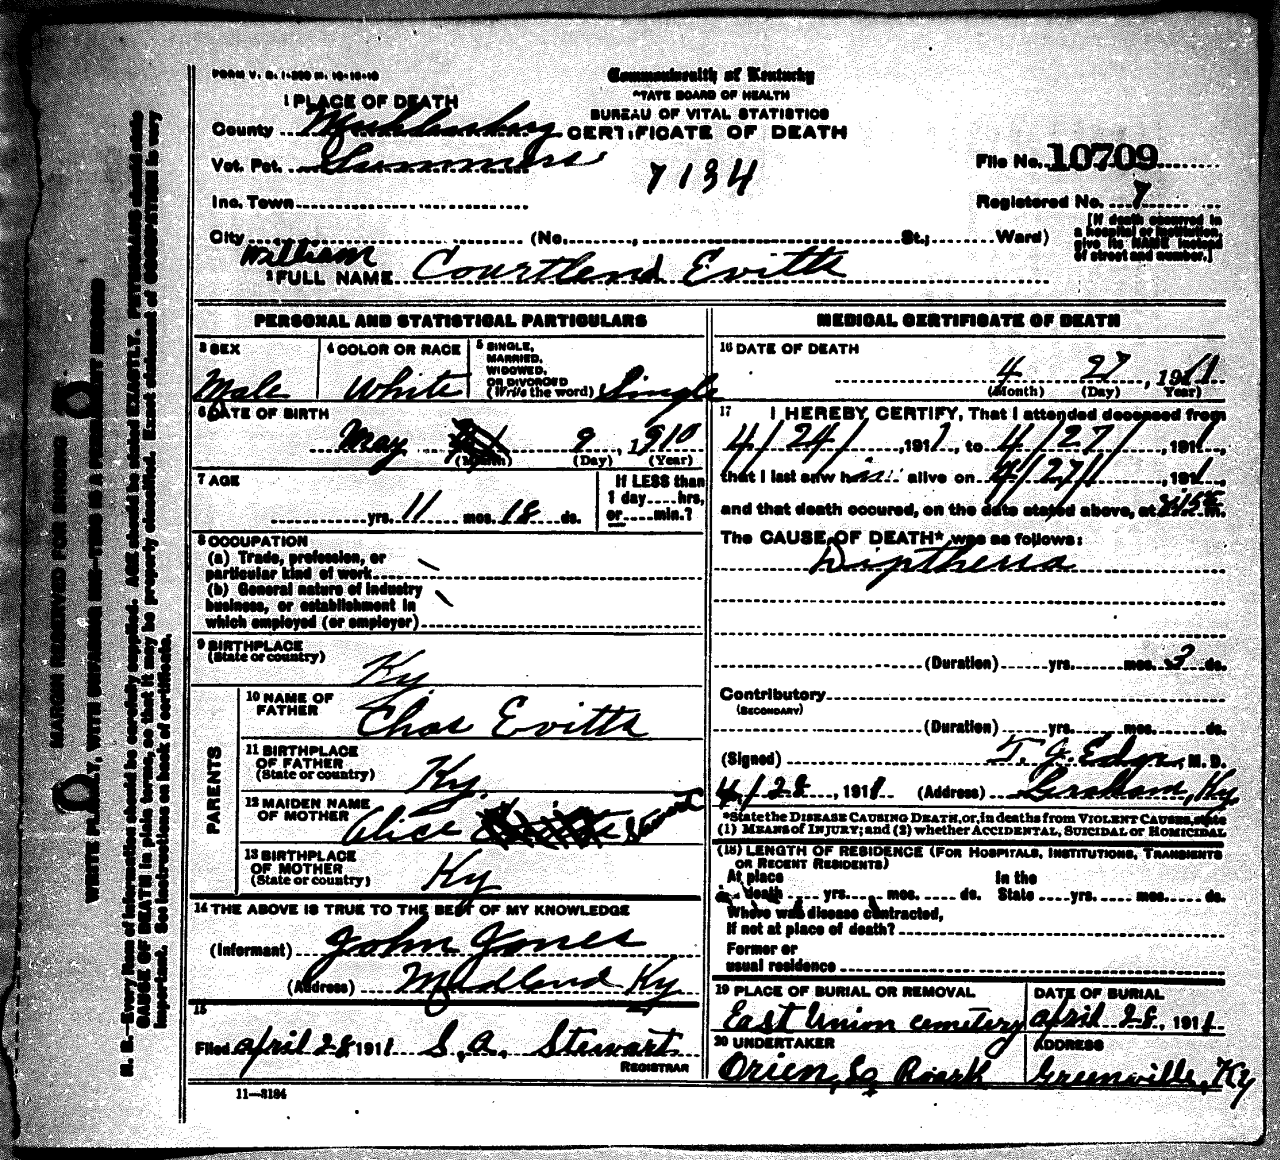 FORM V. S. 1-200 M. 10-10-10
Commonwealth of Kentucky
STATE BOARD OF HEALTH
BUREAU OF VITAL STATISTICS
CERTIFICATE OF DEATH
1 PLACE OF DEATH
County Muhlenberg
Vot. Pct. Summers
7134
File No. 10709
Inc. Town
Registered No. 7
City (No. , St.; Ward)
[If death occurred in
a hospital or institution,
give its NAME instead
of street and number.]
William
2 FULL NAME Courtland Evitts
PERSONAL AND STATISTICAL PARTICULARS
3 SEX
Male
4 COLOR OR RACE
White
5 SINGLE,
MARRIED,
WIDOWED,
OR DIVORCED
(Write the word) Single
6 DATE OF BIRTH
May 9, 1910
(Month) (Day) (Year)
7 AGE
yrs. 11 mos. 18 ds.
If LESS than
1 day hrs,
or min.?
8 OCCUPATION
(a) Trade, profession, or
particular kind of work
(b) General nature of industry
business, or establishment in
which employed (or employer)
9 BIRTHPLACE
(State or country) Ky
PARENTS
10 NAME OF
FATHER Chas Evitts
11 BIRTHPLACE
OF FATHER
(State or country) Ky.
12 MAIDEN NAME
OF MOTHER Alice Stewart
13 BIRTHPLACE
OF MOTHER
(State or country) Ky
14 THE ABOVE IS TRUE TO THE BEST OF MY KNOWLEDGE
(Informant) John Jones
(Address) Midland Ky
15
Filed April 28 1911 S. A. Stewart
REGISTRAR
11—3184
MEDICAL CERTIFICATE OF DEATH
16 DATE OF DEATH
4 27, 1911
(Month) (Day) Year)
17 I HEREBY CERTIFY, That I attended deceased from
4/24/, 1911, to 4/27/, 1911,
that I last saw him alive on 4/27/, 1911,
and that death occured, on the date stated above, at m.
The CAUSE OF DEATH* was as follows:
Diptheria
(Duration) yrs. mos. 3 ds.
Contributory
(SECONDARY)
(Duration) yrs. mos. ds.
(Signed) T. J. Edgar, M. D.
4/28, 1911 (Address) Graham, Ky
*State the DISEASE CAUSING DEATH, or, in deaths from VIOLENT CAUSES, state
(1) MEANS OF INJURY; and (2) whether ACCIDENTAL, SUICIDAL or HOMICIDAL
(18) LENGTH OF RESIDENCE (FOR HOSPITALS, INSTITUTIONS, TRANSIENTS
OR RECENT RESIDENTS)
At place In the
of death yrs. mos. ds. State yrs. mos. ds.
Where was disease contracted,
If not at place of death?
Former or
usual residence
19 PLACE OF BURIAL OR REMOVAL
East Union cemetery
DATE OF BURIAL
April 28, 1911
20 UNDERTAKER
Orien, L. Roark
ADDRESS
Greenville, Ky
MARGIN RESERVED FOR BINDING
WRITE PLAINLY, WITH UNFADING INK—THIS IS A PERMANENT RECORD
N. B.—Every item of information should be carefully supplied. AGE should be stated EXACTLY. PHYSICIANS should state
CAUSE OF DEATH in plain terms, so that it may be properly classified. Exact statement of OCCUPATION is very
important. See instructions on back of certificate.